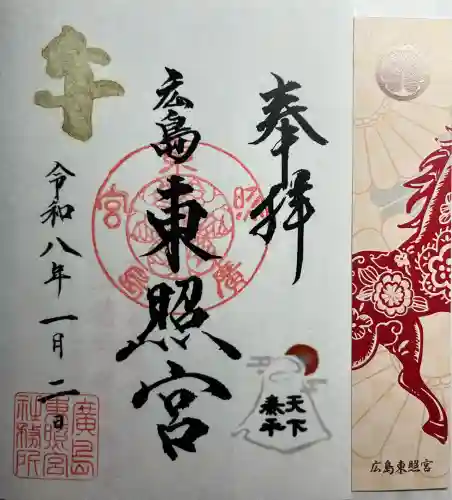 奉拝
広島東照宮
廣島東照宮
天下
泰平
令和八年一月二日
廣島
東照宮
社務所
広島東照宮